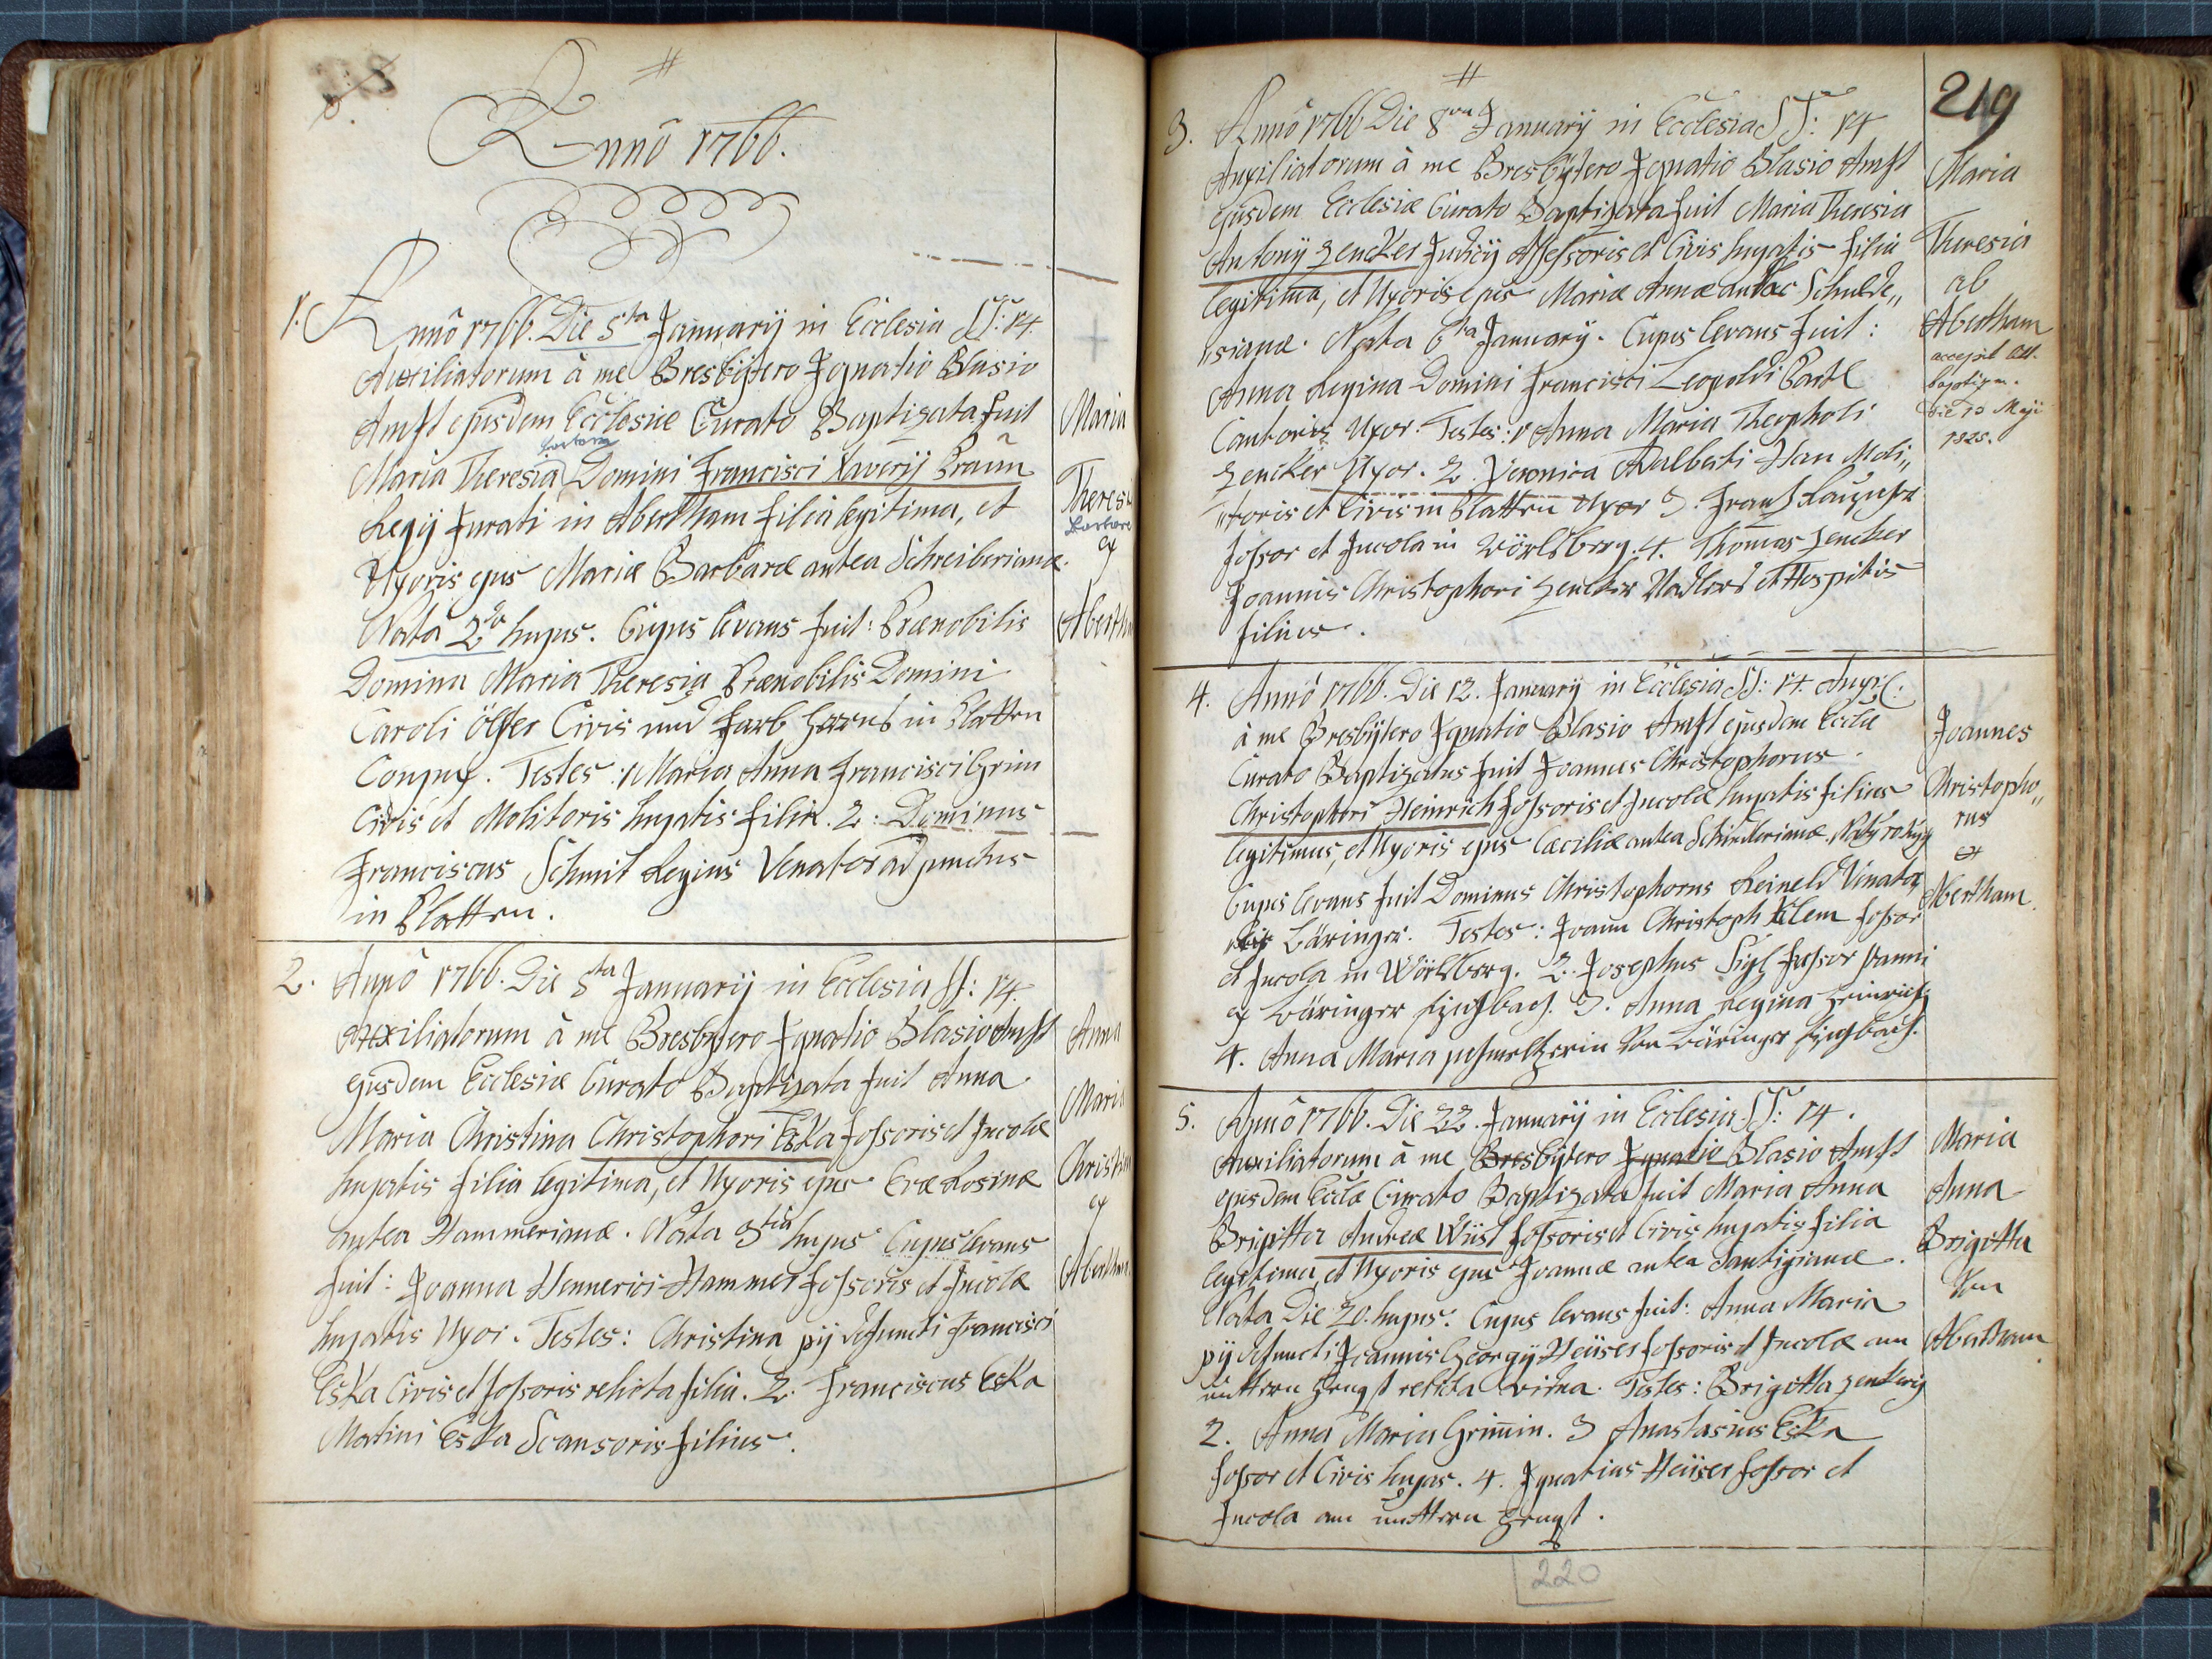 Anno 1766.
1. Anno 1766. Die 5ta Januarij in Ecclesia SS: 14.
Auxiliatorum à me Presbÿtero Ignatio Blasio
Amst ejusdem Ecclesiæ Curato Baptizata fuit
Barbara
Maria Theresia Domini Francisci Xaverij Braun
Regij Jurati in Abertham filia legitima, et
Uxoris ejus Mariæ Barbaræ antea Schreiberianæ.
Nata 2da hujus. Cujus levans fuit: Prænobilis
Domina Maria Theresia Prænobilis Domini
Caroli Ölßer Civis und Farb Herrns in Platten
Conjux. Testes: 1 Maria Anna Francisci Grim
Civis et Molitoris hujatis filia. 2: Dominus
Franciscus Schmit Regius Venator adjunctus
in Platten.
Maria
Theresia
Barbara
ex
Abertham
2. Anno 1766. Die 5ta Januarij in Ecclesia SS: 14.
Auxiliatorum à me Presbÿtero Ignatio Blasio Amst
ejusdem Ecclesiæ Curato Baptizata fuit Anna
Maria Christina Christophori Eska fossoris et Incolæ
hujatis filia legitima, et Uxoris ejus Evæ Rosinæ
antea Hammerianæ. Nata 3tia hujus Cujus levans
fuit: Joanna Hennerici Hammer fossoris et Incolæ
hujatis Uxor. Testes: Christina pij defuncti Francisci
Eska Civis et fossoris relicta filia. 2. Franciscus Eska
Martini Eska Scansoris filius.
Anna
Maria
Christina
ex
Abertham
219
3. Anno 1766 Die 8va Januarij in Ecclesia SS: 14
Auxiliatorum à me Presbÿtero Ignatio Blasio Amst
ejusdem Ecclesiæ Curato Baptizata fuit Maria Theresia
Antonij Zencker Judicij Assessoris et Civis hujatis filia
legitima, et Uxoris ejus Mariæ Annæ antea Schulde„
„sianæ. Nata 6ta Januarij. Cujus levans fuit:
Anna Regina Domini Francisci Leopoldi Bartl
Cantoris Uxor. Testes: 1 Anna Maria Theopholi
Zencker Uxor. 2. Veronica Adalberti Han Moli„
„toris et Civis in Platten Uxor 3. Frantz
fossor et Incola in Wörlsberg. 4. Thomas Zencker
Joannis Christophori Zencker Nadlers et Hospitis
filius.
Maria
Theresia
ab
Abertham
accepit att.
baptism.
die 10 Maji
1825.
4. Anno 1766. Die 12. Januarij in Ecclesia SS: 14. Auxil:
à me Presbÿtero Ignatio Blasio Amst ejusdem Ecclæ
Curato Baptizatus fuit Joannes Christophorus
Christophori Heinrich fossoris et Incolæ hujatis filius
legitimus, et Uxoris ejus Cæciliæ antea Natus 10 huj
Cujus levans fuit Dominus Christophorus Reineld Venator
Bäringer. Testes: Joann Christoph Klem fossor
et Incola in Wörlsberg. 2. Josephus Sigl fossor
ex Bäringer 3. Anna Regina Heinrich
4. Anna Maria von Bäringer
Joannes
Christopho„
rus
ex
Abertham
5. Anno 1766. Die 22. Januarij in Ecclesia SS: 14.
Auxiliatorum à me Presbÿtero Ignatio Blasio Amst
ejusdem Ecclæ Curato Baptizata fuit Maria Anna
Brigitta Andreæ Wüst fossoris et Civis hujatis filia
legitima, et Uxoris ejus Joannæ antea
Nata Die 20. hujus. Cujus levans fuit: Anna Maria
pij defuncti Joannis Georgij Heüser fossoris et Incolæ am
unttern Hengst relicta vidua. Testes: Brigitta
2. Anna Maria Grimin. 3 Anastasius Eska
fossor et Civis hujas. 4. Ignatius Heüser fossor et
Incola am unttern Hengst.
Maria
Anna
Brigitta
Von
Abertham
220